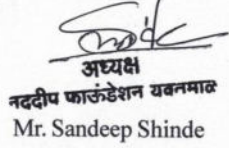 अध्यक्ष
नददीप फाऊंडेशन यवतमाळ
Mr. Sandeep Shinde